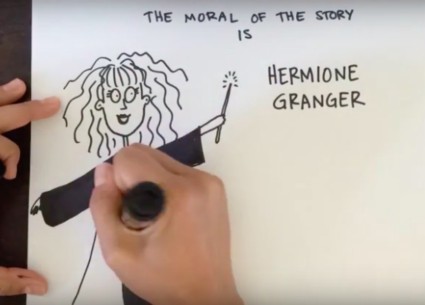 THE MORAL OF THE STORY
IS
HERMIONE
GRANGER